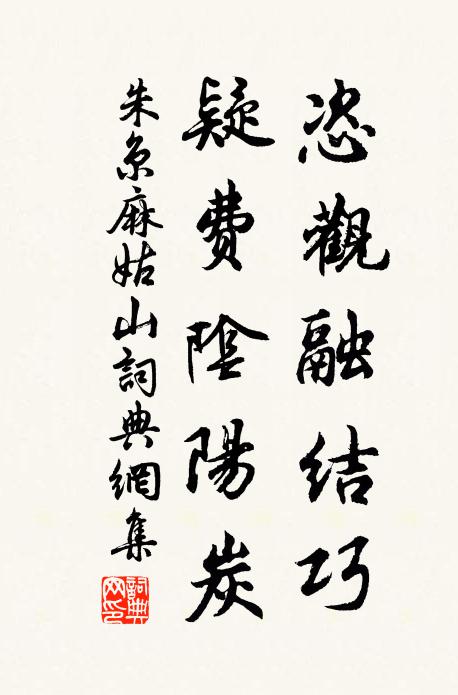 恣觀融結巧
疑費陰陽炭
朱京麻姑山詞典網集
詞典網印